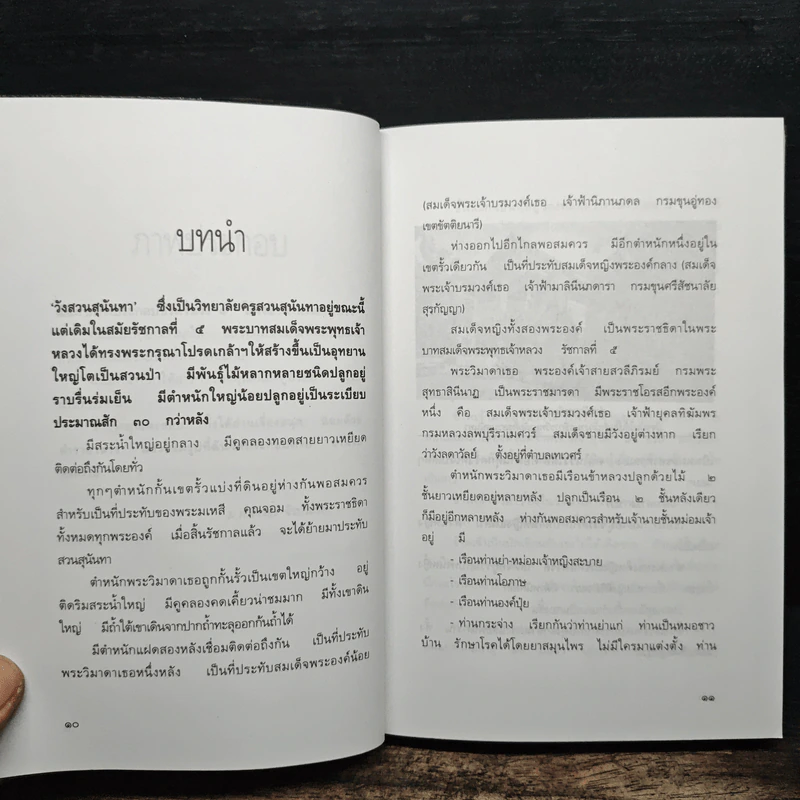 บทนำ
'วังสวนสุนันทา' ซึ่งเป็นวิทยาลัยครูสวนสุนันทาอยู่ขณะนี้
แต่เดิมในสมัยรัชกาลที่ ๕ พระบาทสมเด็จพระพุทธเจ้า
หลวงได้ทรงพระกรุณาโปรดเกล้าฯให้สร้างขึ้นเป็นอุทยาน
ใหญ่โตเป็นสวนป่า มีพันธุ์ไม้หลากหลายชนิดปลูกอยู่
ราบรื่นร่มเย็น มีตำหนักใหญ่น้อยปลูกอยู่เป็นระเบียบ
ประมาณสัก ๓๐ กว่าหลัง
มีสระน้ำใหญ่อยู่กลาง มีคูคลองทอดสายยาวเหยียด
ติดต่อถึงกันโดยทั่ว
ทุกๆตำหนักกั้นเขตรั้วแบ่งที่ดินอยู่ห่างกันพอสมควร
สำหรับเป็นที่ประทับของพระมเหสี คุณจอม ทั้งพระราชธิดา
ทั้งหมดทุกพระองค์ เมื่อสิ้นรัชกาลแล้ว จะได้ย้ายมาประทับ
สวนสุนันทา
ตำหนักพระวิมาดาเธอถูกกั้นรั้วเป็นเขตใหญ่กว้าง อยู่
ติดริมสระน้ำใหญ่ มีคูคลองคดเคี้ยวน่าชมมาก มีทั้งเขาดิน
ใหญ่ มีถ้ำใต้เขาเดินจากปากถ้ำทะลุออกก้นถ้ำได้
มีตำหนักแฝดสองหลังเชื่อมติดต่อถึงกัน เป็นที่ประทับ
พระวิมาดาเธอหนึ่งหลัง เป็นที่ประทับสมเด็จพระองค์น้อย
๑๐
(สมเด็จพระเจ้าบรมวงศ์เธอ เจ้าฟ้านิภานภดล กรมขุนอู่ทอง
เขตขัตติยนารี)
ห่างออกไปอีกไกลพอสมควร มีอีกตำหนักหนึ่งอยู่ใน
เขตรั้วเดียวกัน เป็นที่ประทับสมเด็จหญิงพระองค์กลาง (สมเด็จ
พระเจ้าบรมวงศ์เธอ เจ้าฟ้ามาลินีนภดารา กรมขุนศรีสัชนาลัย
สุรกัญญา)
สมเด็จหญิงทั้งสองพระองค์ เป็นพระราชธิดาในพระ
บาทสมเด็จพระพุทธเจ้าหลวง รัชกาลที่ ๕
พระวิมาดาเธอ พระองค์เจ้าสายสวลีภิรมย์ กรมพระ
สุทธาสินีนาฏ เป็นพระราชมารดา มีพระราชโอรสอีกพระองค์
หนึ่ง คือ สมเด็จพระเจ้าบรมวงศ์เธอ เจ้าฟ้ายุคลทิฆัมพร
กรมหลวงลพบุรีราเมศวร์ สมเด็จชายมีวังอยู่ต่างหาก เรียก
ว่าวังลดาวัลย์ ตั้งอยู่ที่ตำบลเทเวศร์
ตำหนักพระวิมาดาเธอมีเรือนข้าหลวงปลูกด้วยไม้ ๒
ชั้นยาวเหยียดอยู่หลายหลัง ปลูกเป็นเรือน ๒ ชั้นหลังเดียว
ก็มีอยู่อีกหลายหลัง ห่างกันพอสมควรสำหรับเจ้านายชั้นหม่อมเจ้า
อยู่ มี
- เรือนท่านย่า-หม่อมเจ้าหญิงสะบาย
- เรือนท่านโอภาษ
- เรือนท่านองค์ปุ๋ย
- ท่านกระจ่าง เรียกกันว่าท่านย่าแก่ ท่านเป็นหมอชาว
บ้าน รักษาโรคได้โดยยาสมุนไพร ไม่มีใครมาแต่งตั้ง ท่าน
๑๑